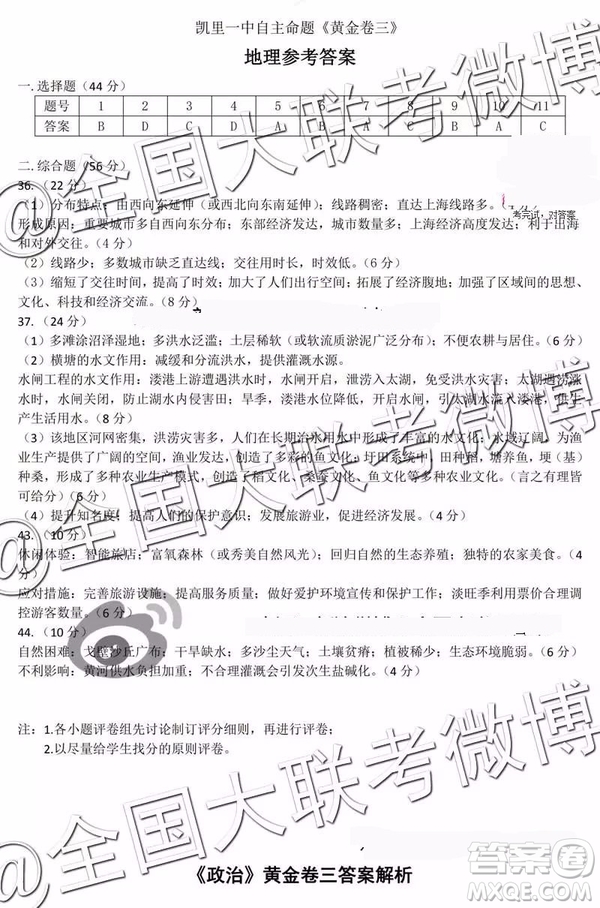 凯里一中自主命题《黄金卷三》
地理参考答案
一. 选择题（44 分）
题号 1 2 3 4 5 6 7 8 9 10 11
答案 B D C D A C B A C
二. 综合题（56 分）
36.（22 分）
（1）分布特点：由西向东延伸（或西北向东南延伸）；线路稠密；直达上海线路多。
考完试，对答案
形成原因：重要城市多自西向东分布；东部经济发达，城市多；上海经济高度发达，利于上海
和对外交往。（4 分）
（2）线路少；多数城市缺乏直达线；交通时效低。（6 分）
（3）缩短了交流时间；方便人们出行；拓展了经济腹地；扩大了空间；增强了区域间的思想、
文化、科技和经济交流。（8 分）
37.（24 分）
（1）多滩涂沼泽湿地；多洪水泛滥；土层稀软（或流质淤泥广泛分布），不利农耕与居住。（6 分）
（2）横塘的水文作用：减缓和分流洪水，提供灌溉水源。
水闸工程的水文作用：溇港上游遭遇洪水时，水闸开启，泄涝入太湖，免受洪灾；太湖洪水时，
水闸关闭，防止湖水内侵害田；旱季，溇港水位降低，水闸开闸，引太湖水流入溇港，供生
产生活用水。（8 分）
（3）该地区河网密集，洪涝灾害多，人们在长期治水用水中形成了丰富的水文化；水域辽阔，为渔
业生产提供了广阔的空间，创造了多彩的鱼文化；圩田系统中，田里种稻，塘养鱼，埂（基）
种桑，形成了多种农业生产模式，创造了稻文化、桑蚕文化、鱼文化等多种农业文化。（言之有理即
可给分）（6 分）
（4）提升知名度；提高人们的保护意识；发展旅游业，促进经济发展。（4 分）
43.（10 分）
休闲体验：智能旅店；富氧森林（或秀美自然风光）；回归自然的生态养吧；独特的农家美食。（4
分）
应对措施：完善旅游设施；提高服务质量；做好爱护环境宣传和管理；淡旺季利用票价合理调
控游客数量。（6 分）
44.（10 分）
自然困难：戈壁沙丘广布；干旱缺水；多沙尘天气；土壤贫瘠；植被稀少；生态环境脆弱。（6 分）
不利影响：黄河供水负担加重；不合理灌溉会引发次生盐碱化。（4 分）
注：1.各小题评卷组先讨论制订评分细则，再进行评卷；
2.以尽量给学生找分的原则评卷。
《政治》黄金卷三答案解析
@全国大联考微博
@全国大联考微博
@全国大联考微博
答案卷
WWW.MXQE.COM